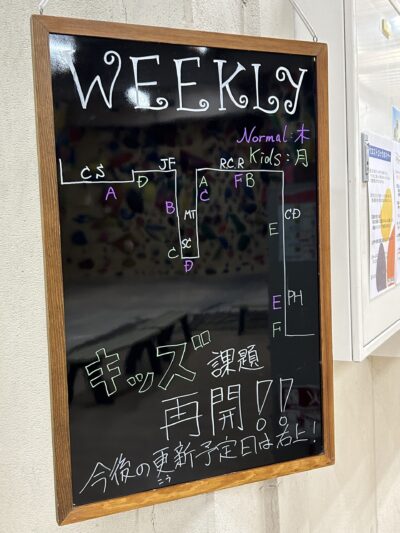 WEEKLY
Normal:木
Kids:月
C.S
A
D
JF
B
MT
SC
C
D
R.C.R
A
F
B
C
E
CD
E
PH
F
キッズ 課題
再開!!
今後の更新予定日は右上!
こう